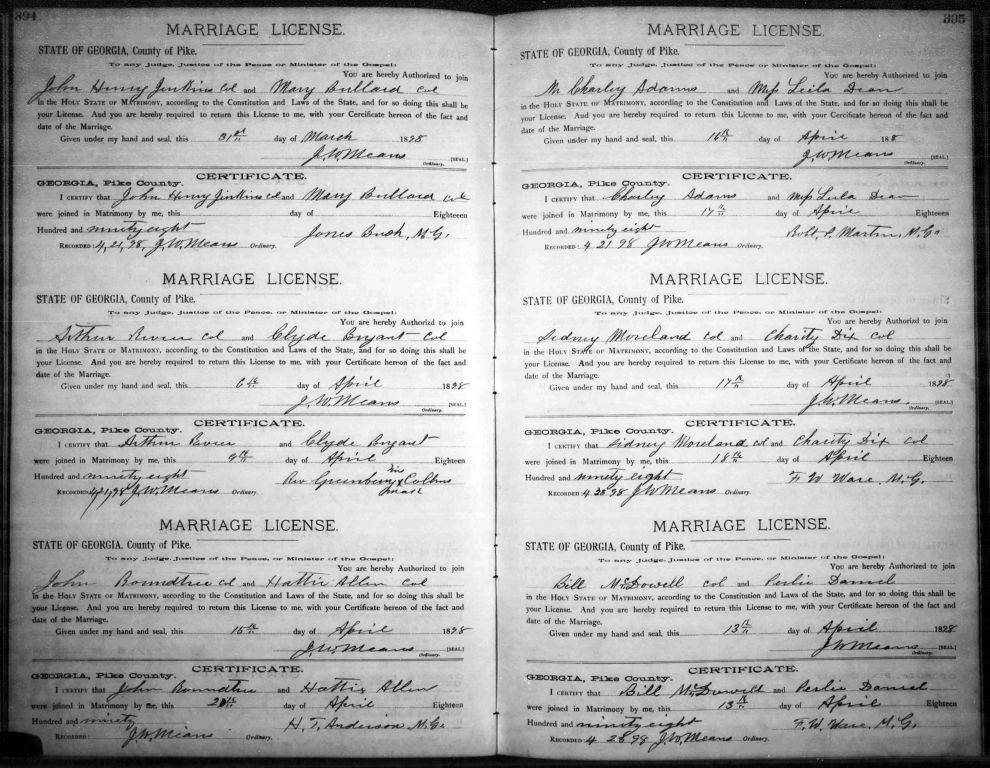 394
MARRIAGE LICENSE.
STATE OF GEORGIA, County of Pike.
To any Judge, Justice of the Peace or Minister of the Gospel:
You are hereby Authorized to join
John Henry Jinkins Col and Mary Bullard Col
in the HOLY STATE OF MATRIMONY, according to the Constitution and Laws of the State, and for so doing this shall be
your License. And you are hereby required to return this License to me, with your Certificate hereon of the fact and
date of the Marriage.
Given under my hand and seal, this 31st day of March 1898
J.W. Means [SEAL]
Ordinary.
CERTIFICATE.
GEORGIA, Pike County.
I CERTIFY that John Henry Jinkins col and Mary Bullard col
were joined in Matrimony by me, this day of Eighteen
Hundred and ninety eight Jones Bush, M.G.
RECORDED: 4,21,98, J.W. Means Ordinary.
MARRIAGE LICENSE.
STATE OF GEORGIA, County of Pike.
To any Judge, Justice of the Peace or Minister of the Gospel:
You are hereby Authorized to join
Arthur Rivier Col and Clyde Bryant Col
in the HOLY STATE OF MATRIMONY, according to the Constitution and Laws of the State, and for so doing this shall be
your License. And you are hereby required to return this License to me, with your Certificate hereon of the fact and
date of the Marriage.
Given under my hand and seal, this 6th day of April 1898
J.W. Means [SEAL]
Ordinary.
CERTIFICATE.
GEORGIA, Pike County.
I CERTIFY that Arthur Rivier and Clyde Bryant
were joined in Matrimony by me, this 9th day of April Eighteen
Hundred and ninety eight Rev Greenberry his x mark Collins
RECORDED: 4,21,98 J.W. Means Ordinary.
MARRIAGE LICENSE.
STATE OF GEORGIA, County of Pike.
To any Judge, Justice of the Peace, or Minister of the Gospel:
You are hereby Authorized to join
John Roundtree Col and Hattie Allen Col
in the HOLY STATE OF MATRIMONY, according to the Constitution and Laws of the State, and for so doing this shall be
your License. And you are hereby required to return this License to me, with your Certificate hereon of the fact and
date of the Marriage.
Given under my hand and seal, this 15th day of April 1898
J.W. Means [SEAL]
Ordinary.
CERTIFICATE.
GEORGIA, Pike County.
I CERTIFY that John Roundtree and Hattie Allen
were joined in Matrimony by me, this 20th day of April Eighteen
Hundred and ninety H. T. Anderson M.G.
RECORDED: J.W. Means Ordinary.
395
MARRIAGE LICENSE.
STATE OF GEORGIA, County of Pike.
To any Judge, Justice of the Peace or Minister of the Gospel:
You are hereby Authorized to join
Mr Charley Adams and Miss Leila Dean
in the HOLY STATE OF MATRIMONY, according to the Constitution and Laws of the State, and for so doing this shall be
your License. And you are hereby required to return this License to me, with your Certificate hereon of the fact and
date of the Marriage.
Given under my hand and seal, this 16th day of April 188
J.W. Means [SEAL]
Ordinary.
CERTIFICATE.
GEORGIA, Pike County.
I CERTIFY that Charley Adams and Miss Leila Dean
were joined in Matrimony by me, this 17th day of April Eighteen
Hundred and ninety eight Robt. P. Martin, M.G.
RECORDED: 4 21 98 J.W. Means Ordinary.
MARRIAGE LICENSE.
STATE OF GEORGIA, County of Pike.
To any Judge, Justice of the Peace or Minister of the Gospel:
You are hereby Authorized to join
Sidney Moreland Col and Charity Dix Col
in the HOLY STATE OF MATRIMONY, according to the Constitution and Laws of the State, and for so doing this shall be
your License. And you are hereby required to return this License to me, with your Certificate hereon of the fact and
date of the Marriage.
Given under my hand and seal, this 17th day of April 1898
J.W. Means. [SEAL]
Ordinary.
CERTIFICATE.
GEORGIA, Pike County.
I CERTIFY that Sidney Moreland Col and Charity Dix Col
were joined in Matrimony by me, this 18th day of April Eighteen
Hundred and ninety eight F. W. Ware, M.G.
RECORDED: 4 28 98 J.W. Means Ordinary.
MARRIAGE LICENSE.
STATE OF GEORGIA, County of Pike.
To any Judge, Justice of the Peace, or Minister of the Gospel:
You are hereby Authorized to join
Bill McDowell Col and Perlie Daniel
in the HOLY STATE OF MATRIMONY, according to the Constitution and Laws of the State, and for so doing this shall be
your License. And you are hereby required to return this License to me, with your Certificate hereon of the fact and
date of the Marriage.
Given under my hand and seal, this 13th day of April 1898
J.W. Means [SEAL]
Ordinary.
CERTIFICATE.
GEORGIA, Pike County.
I CERTIFY that Bill McDowell and Perlie Daniel
were joined in Matrimony by me, this 13th day of April Eighteen
Hundred and ninety eight F. W. Ware, M.G.
RECORDED: 4 28 98 J.W. Means Ordinary.